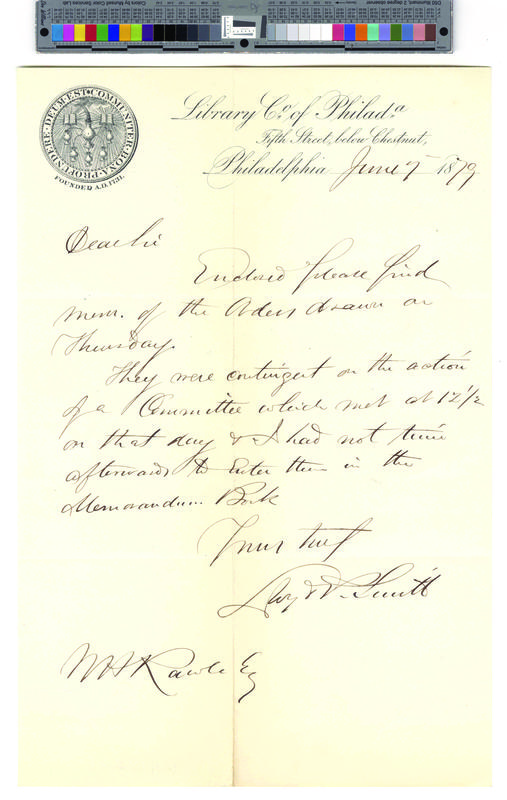 COMMUNITER BONA PROFUNDERE DEUM EST
FOUNDED A.D. 1731.
Library Co. of Philada.
Fifth Street, below Chestnut,
Philadelphia June 7 1879
Dear Sir
Enclosed please find
mem. of the Orders drawn on
Thursday.
They were contingent on the action
of a Committee which met at 12 1/2
on that day & I had not time
afterwards to Enter them in the
Memorandum Book
Yours truly
Lloyd P. Smith
W H Rawle Esq